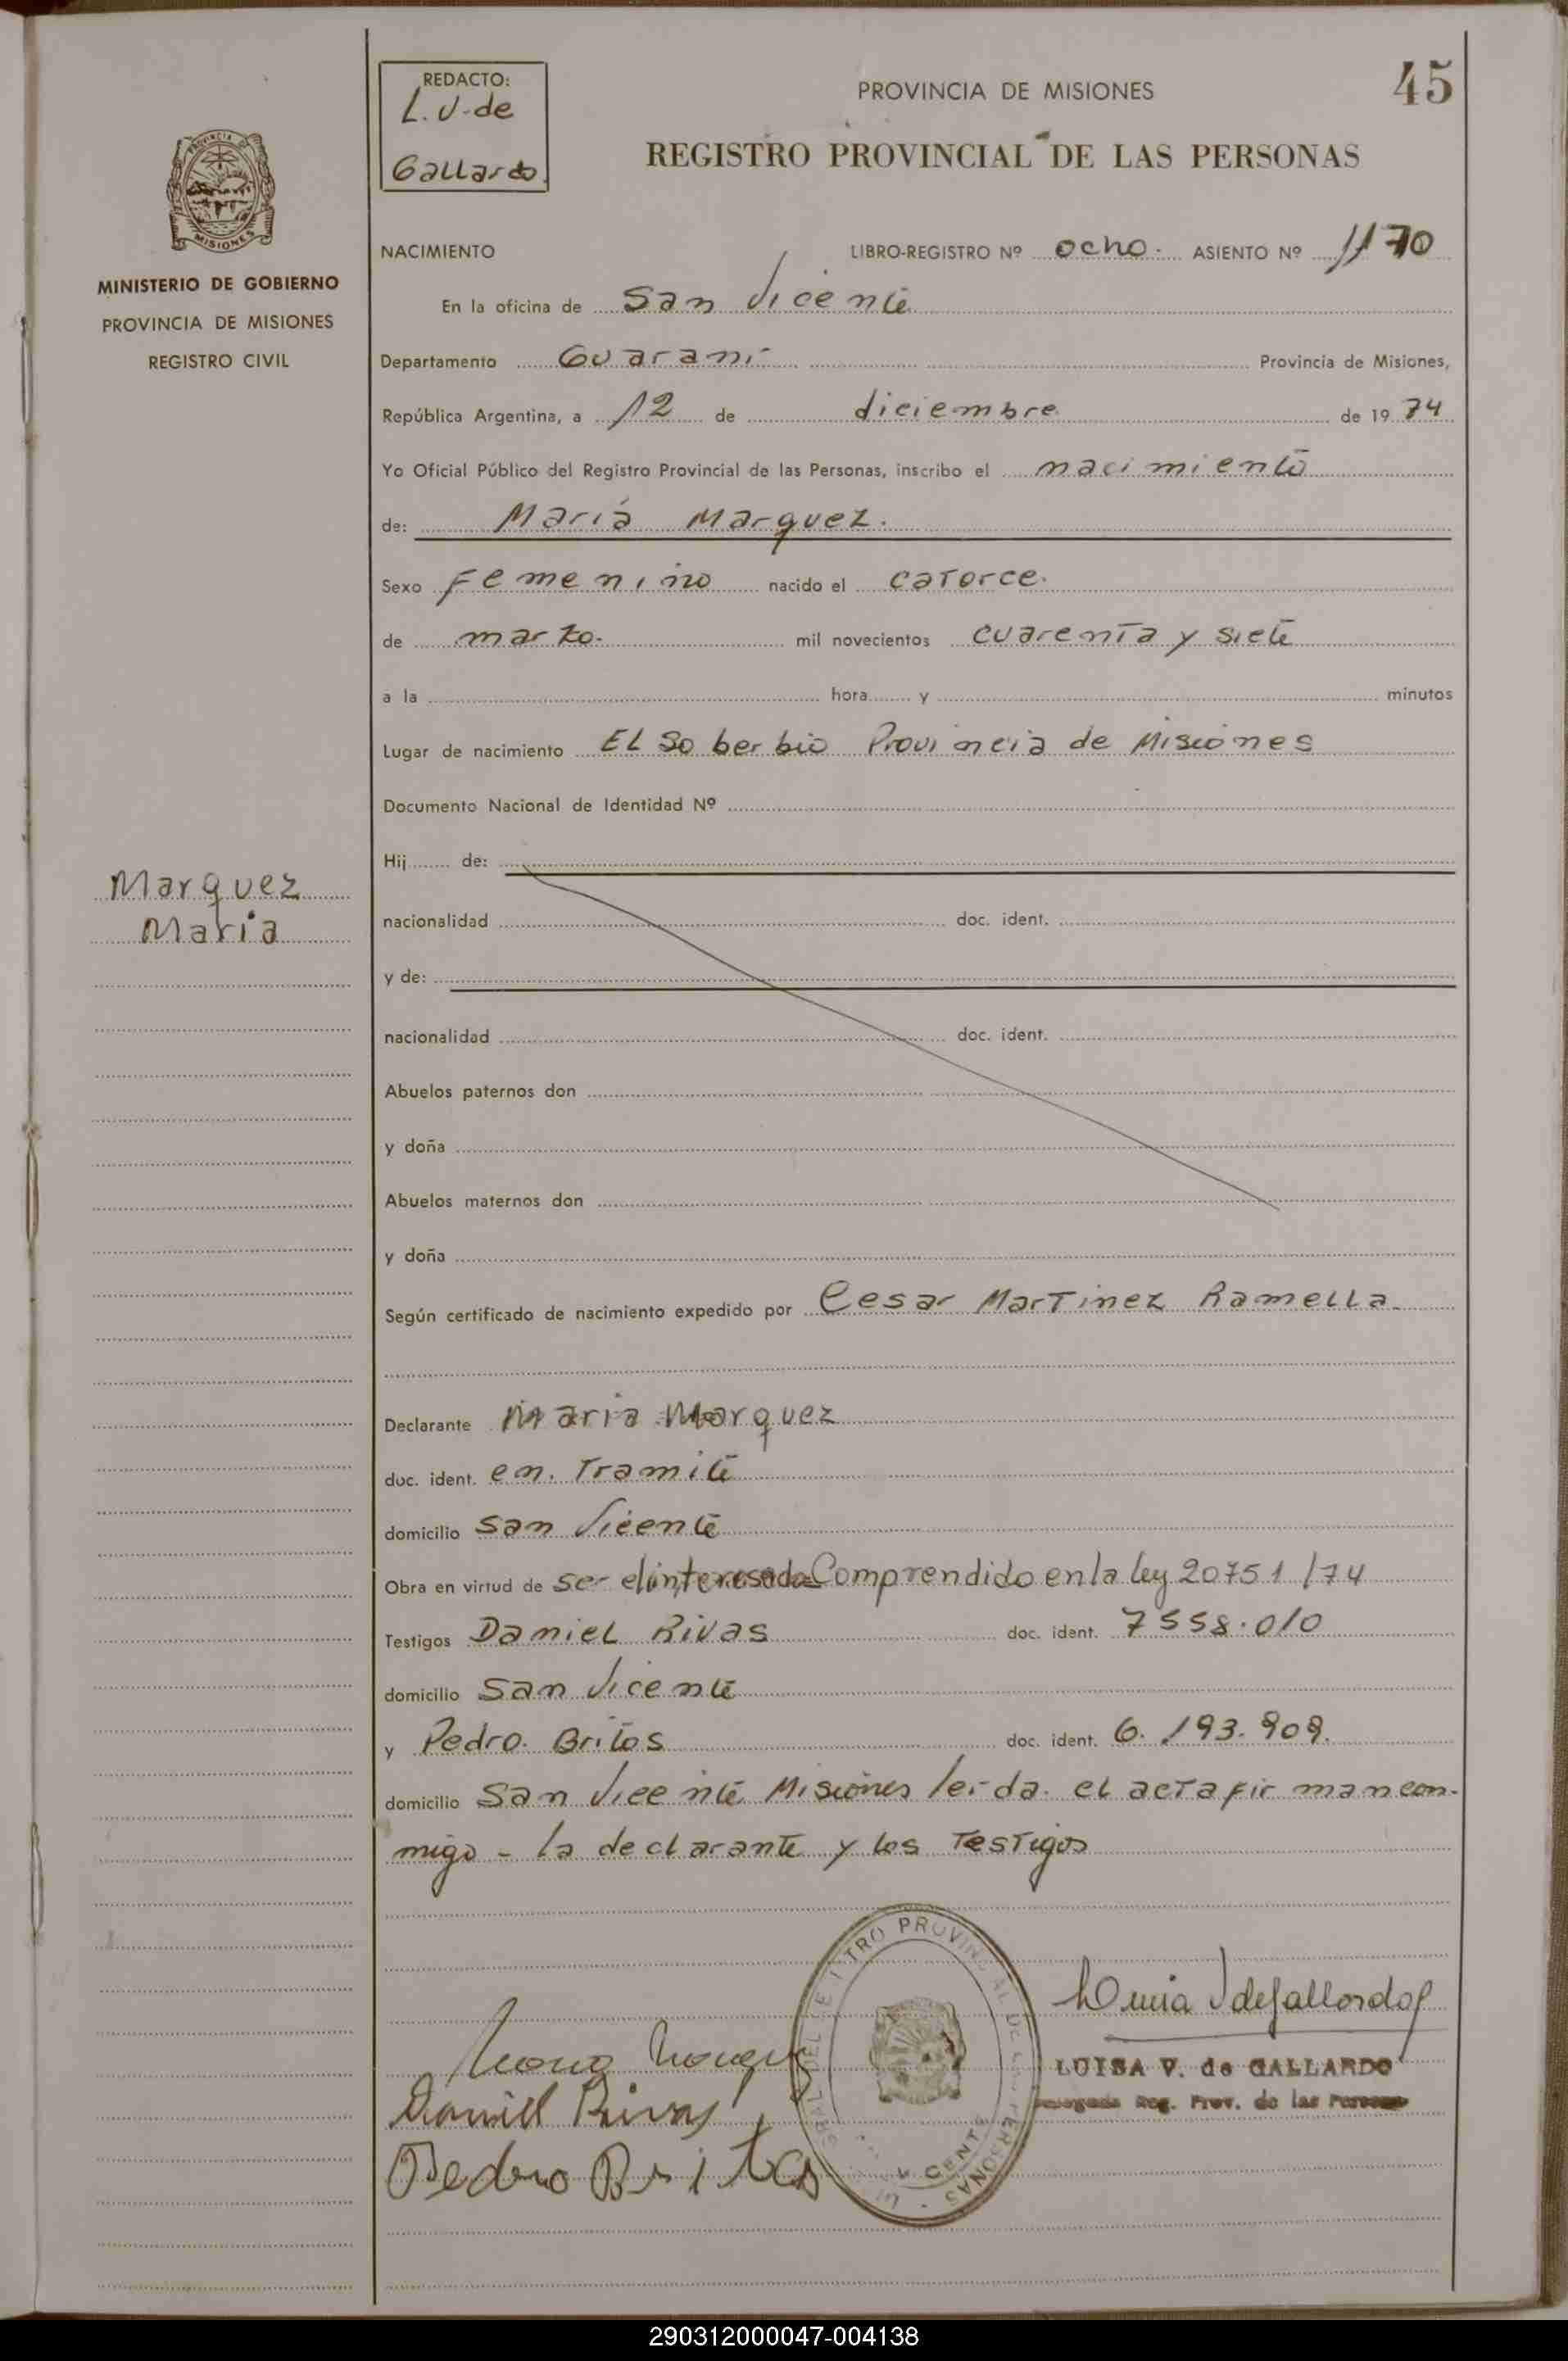 REDACTO:
L. V. de
Gallardo.
PROVINCIA DE MISIONES
45
REGISTRO PROVINCIAL DE LAS PERSONAS
MISIONES
MINISTERIO DE GOBIERNO
PROVINCIA DE MISIONES
REGISTRO CIVIL
NACIMIENTO LIBRO-REGISTRO Nº ocho. ASIENTO Nº 1170
En la oficina de San Vicente
Departamento Guaraní Provincia de Misiones,
República Argentina, a 12 de diciembre de 1974
Yo Oficial Público del Registro Provincial de las Personas, inscribo el nacimiento
de: María Marquez.
Sexo Femenino nacido el catorce.
de marzo. mil novecientos cuarenta y siete
a la hora y minutos
Lugar de nacimiento El Soberbio Provincia de Misiones
Documento Nacional de Identidad Nº
Hij de:
Marquez
Maria
nacionalidad doc. ident.
y de:
nacionalidad doc. ident.
Abuelos paternos don
y doña
Abuelos maternos don
y doña
Según certificado de nacimiento expedido por Cesar Martinez Ramella.
Declarante Maria Marquez
doc. ident. en. Tramite
domicilio San Vicente
Obra en virtud de ser el interesado Comprendido en la ley 20751/74
Testigos Daniel Rivas doc. ident. 7558.010
domicilio San Vicente
y Pedro. Britos doc. ident. 6.193.909.
domicilio San Vicente Misiones leida. el acta firman con-
migo - la declarante y los Testigos
Daniel Rivas
Pedro Britos
LUISA V. de GALLARDO
Reg. Prov. de las Personas
290312000047-004138